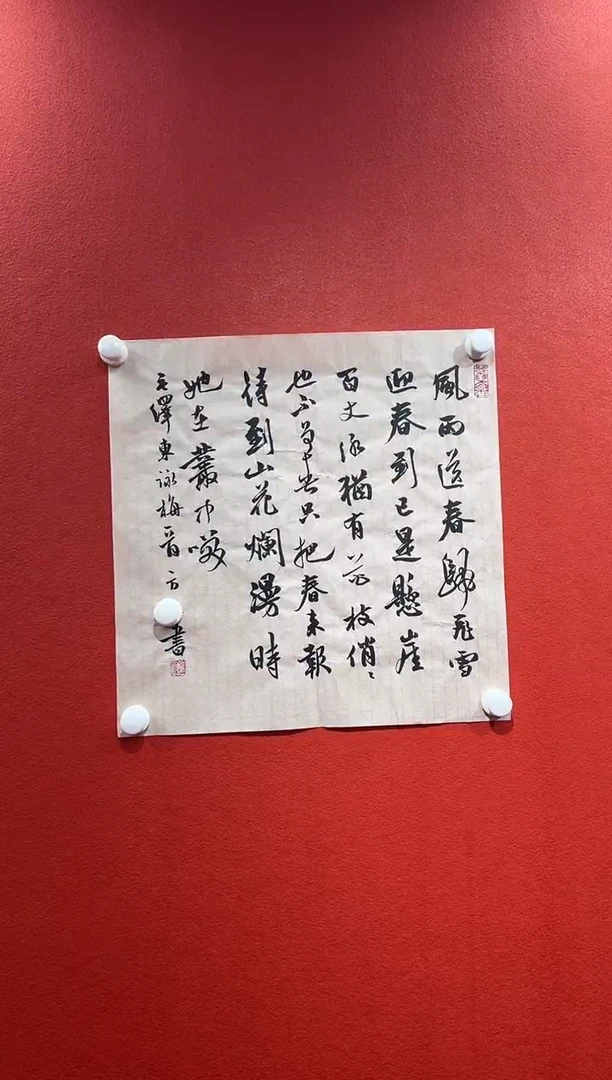 風雨送春歸飛雪
迎春到已是懸崖
百丈冰猶有花枝俏〻
也不爭春只把春來報
待到山花爛漫時
她在叢中咲
毛澤東詠梅 方 書